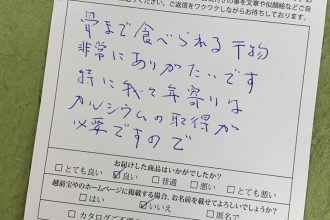 ご返信をワクワクしながらお待ちしております。
骨まで食べられる干物
非常にありがたいです
特に我々年寄りは
カルシウムの取得が
必要ですので
お届けした商品はいかがでしたか?
□とても良い ☑良い □普通 □悪い □とても悪い
越前宝やのホームページに掲載する場合、お名前を載せてよろしいでしょうか?
□はい ☑いいえ □匿名で
□カタログ